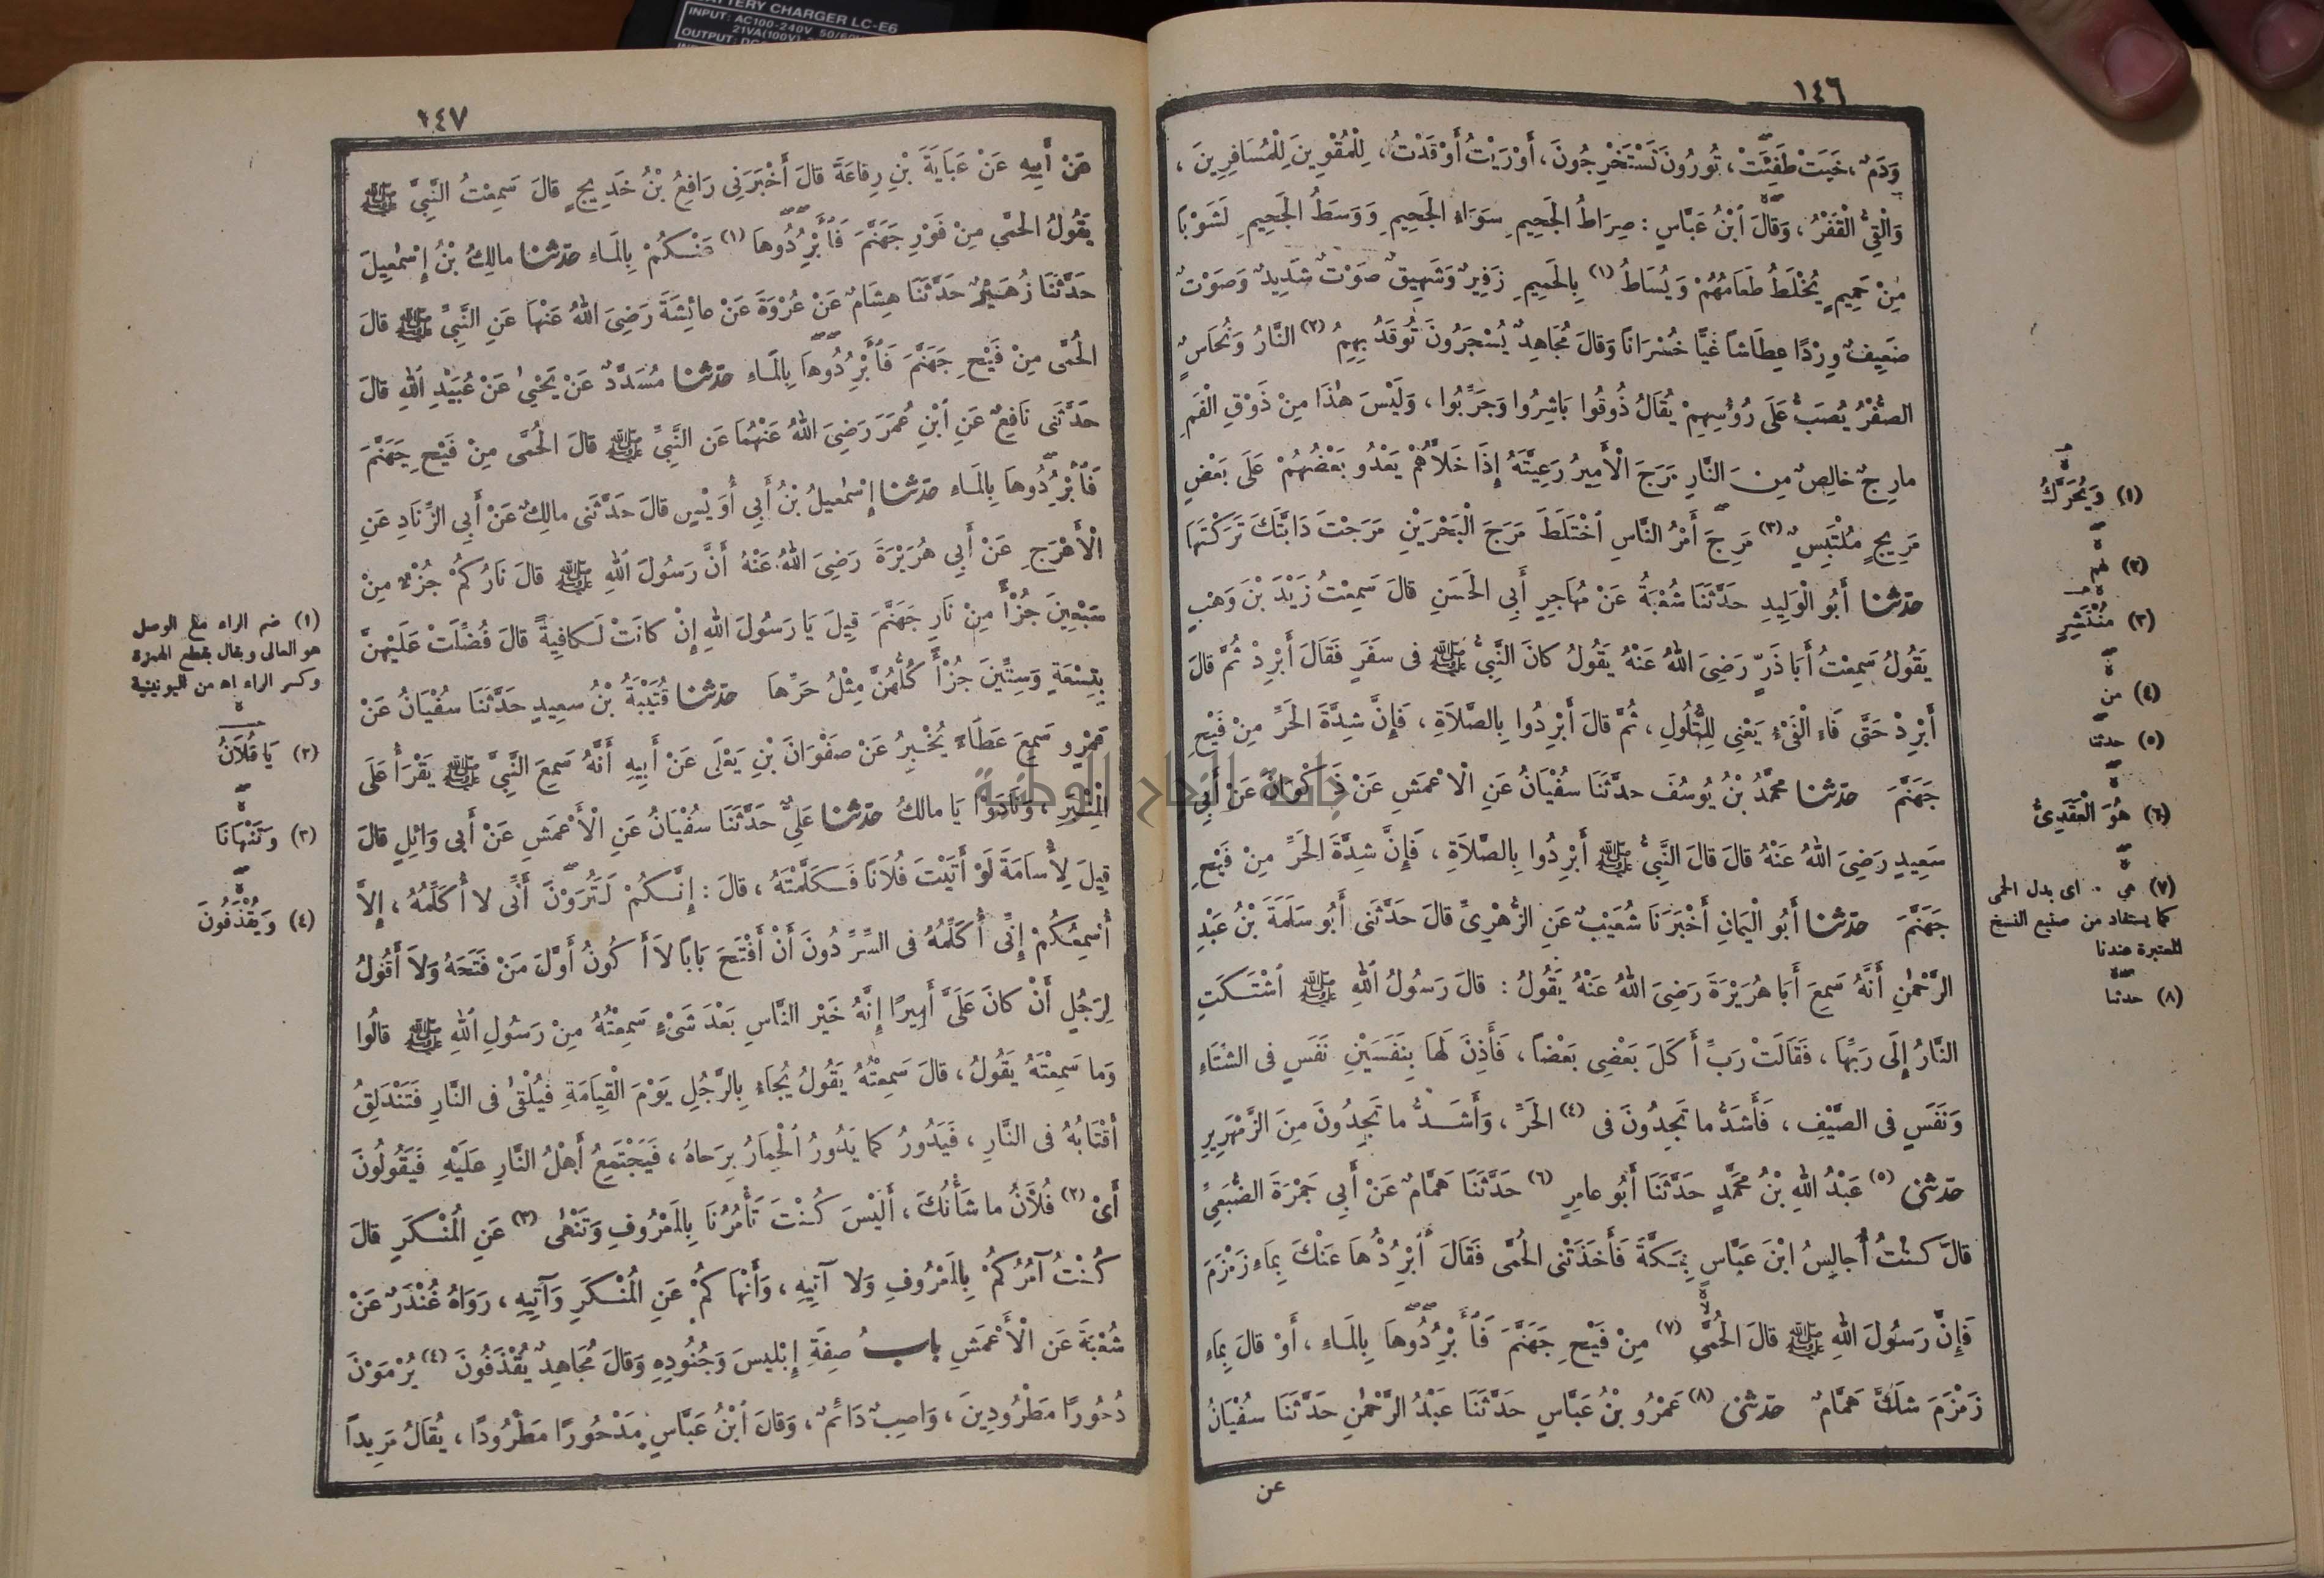 BATTERY CHARGER LC-E6
INPUT: AC100-240V 50/60H
21VA(100V)-
OUTPUT: DC
١٤٦
وَدَمٌ، خَبَتْ طَفِئَتْ، تُورُونَ تَسْتَخْرِجُونَ، أَوْرَيْتُ أَوْقَدْتُ، لِلْمُقْوِينَ لِلْمُسَافِرِينَ،
وَالْقِيُّ الْقَفْرُ، وَقالَ ٱبْنُ عَبَّاسٍ: صِرَاطُ الجَحِيمِ سَوَاءِ الجَحِيمِ وَوَسَطُ الجَحِيمِ لَشَوْبًا
مِنْ حَمِيمٍ يُخْلَطُ طَعَامُهُمْ وَيُسَاطُ (١) بِالحَمِيمِ زَفِيرٌ وَشَهِيقٌ صَوْتٌ شَدِيدٌ وَصَوْتٌ
ضَعِيفٌ وِرْدًا عِطَاشًا غَيًّا خُسْرَانًا وَقالَ مُجَاهِدٌ يُسْجَرُونَ تُوقَدُ بِهِمُ (٢) النَّارُ وَنُحَاسٌ
الصُّفْرُ يُصَبُّ عَلَى رُؤُسِهِمْ يُقَالُ ذُوقُوا بَاشِرُوا وَجَرِّبُوا، وَلَيْسَ هٰذَا مِنْ ذَوْقِ الْفَمِ
مارِجٌ خالِصٌ مِنَ النَّارِ مَرَجَ الْأَمِيرُ رَعِيَّتَهُ إِذَا خَلَّاهُمْ يَعْدُو بَعْضُهُمْ عَلَى بَعْضٍ
مَرِيجٍ مُلْتَبِسٍ (٣) مَرِجَ أَمْرُ النَّاسِ ٱخْتَلَطَ مَرَجَ الْبَحْرَيْنِ مَرَجْتَ دَابَّتَكَ تَرَكْتَهَا
حَدَّثَنَا أَبُو الْوَلِيدِ حَدَّثَنَا شُعْبَةُ عَنْ مُهَاجِرٍ أَبِي الحَسَنِ قالَ سَمِعْتُ زَيْدَ بْنَ وَهْبٍ
يَقُولُ سَمِعْتُ أَبَا ذَرٍّ رَضِيَ اللهُ عَنْهُ يَقُولُ كانَ النَّبِيُّ ﷺ فِى سَفَرٍ فَقَالَ أَبْرِدْ ثُمَّ قالَ
أَبْرِدْ حَتَّى فَاءَ الْفَىْءُ يَعْنِى لِلتُّلُولِ، ثُمَّ قالَ أَبْرِدُوا بِالصَّلَاةِ، فَإِنَّ شِدَّةَ الحَرِّ مِنْ فَيْحِ
جَهَنَّمَ حَدَّثَنَا مُحَمَّدُ بْنُ يُوسُفَ حَدَّثَنَا سُفْيَانُ عَنِ الْأَعْمَشِ عَنْ ذَكْوَانَ عَنْ أَبِي
سَعِيدٍ رَضِيَ اللهُ عَنْهُ قالَ قالَ النَّبِيُّ ﷺ أَبْرِدُوا بِالصَّلَاةِ، فَإِنَّ شِدَّةَ الحَرِّ مِنْ فَيْحِ
جَهَنَّمَ حَدَّثَنَا أَبُو الْيَمَانِ أَخْبَرَنَا شُعَيْبٌ عَنِ الزُّهْرِيِّ قالَ حَدَّثَنِى أَبُو سَلَمَةَ بْنُ عَبْدِ
الرَّحْمٰنِ أَنَّهُ سَمِعَ أَبَا هُرَيْرَةَ رَضِيَ اللهُ عَنْهُ يَقُولُ: قالَ رَسُولُ اللهِ ﷺ ٱشْتَكَتِ
النَّارُ إِلَى رَبِّهَا، فَقَالَتْ رَبِّ أَكَلَ بَعْضِى بَعْضًا، فَأَذِنَ لَهَا بِنَفَسَيْنِ نَفَسٍ فِى الشِّتَاءِ
وَنَفَسٍ فِى الصَّيْفِ، فَأَشَدُّ ما تَجِدُونَ فِى (٤) الحَرِّ، وَأَشَدُّ ما تَجِدُونَ مِنَ الزَّمْهَرِيرِ
حَدَّثَنِى (٥) عَبْدُ اللهِ بْنُ مُحَمَّدٍ حَدَّثَنَا أَبُو عامِرٍ (٦) حَدَّثَنَا هَمَّامٌ عَنْ أَبِي جَمْرَةَ الضُّبَعِيِّ
قالَ كُنْتُ أُجالِسُ ابْنَ عَبَّاسٍ بِمَكَّةَ فَأَخَذَتْنِى الحُمَّى فَقَالَ ٱبْرُدْهَا عَنْكَ بِمَاءِ زَمْزَمَ
فَإِنَّ رَسُولَ اللهِ ﷺ قالَ الحُمَّى (٧) مِنْ فَيْحِ جَهَنَّمَ فَأَبْرِدُوهَا بِالمَاءِ، أَوْ قالَ بِمَاءِ
زَمْزَمَ شَكَّ هَمَّامٌ حَدَّثَنِى (٨) عَمْرُو بْنُ عَبَّاسٍ حَدَّثَنَا عَبْدُ الرَّحْمٰنِ حَدَّثَنَا سُفْيَانُ
عن
(١) وَيُحَرَّكُ
(٢) لهم
(٣) مُنْتَشِرٍ
(٤) من
(٥) حدثنا
(٦) هُوَ الْعَقَدِىُّ
(٧) هي . اى بدل الحمى
كما يستفاد من صنيع النسخ
المعتبرة عندنا
(٨) حدثنا
جامعة النجاح الوطنية
١٤٧
عَنْ أَبِيهِ عَنْ عَبَايَةَ بْنِ رِفاعَةَ قالَ أَخْبَرَنِى رَافِعُ بْنُ خَدِيجٍ قالَ سَمِعْتُ النَّبِيَّ ﷺ
يَقُولُ الحُمَّى مِنْ فَوْرِ جَهَنَّمَ فَأَبْرِدُوهَا (١) عَنْكُمْ بِالمَاءِ حَدَّثَنَا مالِكُ بْنُ إِسْمٰعِيلَ
حَدَّثَنَا زُهَيْرٌ حَدَّثَنَا هِشَامٌ عَنْ عُرْوَةَ عَنْ عائِشَةَ رَضِيَ اللهُ عَنْهَا عَنِ النَّبِيِّ ﷺ قالَ
الحُمَّى مِنْ فَيْحِ جَهَنَّمَ فَأَبْرِدُوهَا بِالمَاءِ حَدَّثَنَا مُسَدَّدٌ عَنْ يَحْيٰى عَنْ عُبَيْدِ اللهِ قالَ
حَدَّثَنِى نَافِعٌ عَنِ ٱبْنِ عُمَرَ رَضِيَ اللهُ عَنْهُمَا عَنِ النَّبِيِّ ﷺ قالَ الحُمَّى مِنْ فَيْحِ جَهَنَّمَ
فَأَبْرِدُوهَا بِالمَاءِ حَدَّثَنَا إِسْمٰعِيلُ بْنُ أَبِي أُوَيْسٍ قالَ حَدَّثَنِى مالِكٌ عَنْ أَبِي الزِّنَادِ عَنِ
الْأَعْرَجِ عَنْ أَبِي هُرَيْرَةَ رَضِيَ اللهُ عَنْهُ أَنَّ رَسُولَ اللهِ ﷺ قالَ نَارُكُمْ جُزْءٌ مِنْ
سَبْعِينَ جُزْأً مِنْ نَارِ جَهَنَّمَ قِيلَ يَا رَسُولَ اللهِ إِنْ كانَتْ لَكافِيَةً قالَ فُضِّلَتْ عَلَيْهِنَّ
بِتِسْعَةٍ وَسِتِّينَ جُزْأً كُلُّهُنَّ مِثْلُ حَرِّهَا حَدَّثَنَا قُتَيْبَةُ بْنُ سَعِيدٍ حَدَّثَنَا سُفْيَانُ عَنْ
عَمْرٍو سَمِعَ عَطَاءً يُخْبِرُ عَنْ صَفْوَانَ بْنِ يَعْلَى عَنْ أَبِيهِ أَنَّهُ سَمِعَ النَّبِيَّ ﷺ يَقْرَأُ عَلَى
الْمِنْبَرِ، وَنَادَوْا يَا مالِكُ حَدَّثَنَا عَلِيٌّ حَدَّثَنَا سُفْيَانُ عَنِ الْأَعْمَشِ عَنْ أَبِى وَائِلٍ قالَ
قِيلَ لِأُسَامَةَ لَوْ أَتَيْتَ فُلَانًا فَكَلَّمْتَهُ، قالَ: إِنَّكُمْ لَتُرَوْنَ أَنِّى لا أُكَلِّمُهُ، إِلَّا
أُسْمِعُكُمْ إِنِّى أُكَلِّمُهُ فِى السِّرِّ دُونَ أَنْ أَفْتَحَ بَابًا لَا أَكُونُ أَوَّلَ مَنْ فَتَحَهُ وَلَا أَقُولُ
لِرَجُلٍ أَنْ كانَ عَلَىَّ أَمِيرًا إِنَّهُ خَيْرُ النَّاسِ بَعْدَ شَىْءٍ سَمِعْتُهُ مِنْ رَسُولِ اللهِ ﷺ قالُوا
وَما سَمِعْتَهُ يَقُولُ، قالَ سَمِعْتُهُ يَقُولُ يُجَاءُ بِالرَّجُلِ يَوْمَ الْقِيَامَةِ فَيُلْقٰى فِى النَّارِ فَتَنْدَلِقُ
أَقْتَابُهُ فِى النَّارِ، فَيَدُورُ كما يَدُورُ ٱلْحِمَارُ بِرَحاهُ، فَيَجْتَمِعُ أَهْلُ النَّارِ عَلَيْهِ فَيَقُولُونَ
أَىْ (٢) فُلَانُ ما شَأْنُكَ، أَلَيْسَ كُنْتَ تَأْمُرُنَا بِالمَعْرُوفِ وَتَنْهٰى (٣) عَنِ المُنْكَرِ قالَ
كُنْتُ آمُرُكُمْ بِالمَعْرُوفِ وَلا آتِيهِ، وَأَنْهَاكُمْ عَنِ المُنْكَرِ وَآتِيهِ، رَوَاهُ غُنْدَرٌ عَنْ
شُعْبَةَ عَنِ الْأَعْمَشِ بابُ صِفَةِ إِبْلِيسَ وَجُنُودِهِ وَقالَ مُجَاهِدٌ يُقْذَفُونَ (٤) يُرْمَوْنَ
دُحُورًا مَطْرُودِينَ، وَاصِبٌ دَائِمٌ، وَقالَ ٱبْنُ عَبَّاسٍ مَدْحُورًا مَطْرُودًا، يُقَالُ مَرِيدًا
(١) ضم الراء مع الوصل
هو العالى ويقال بقطع الهمزة
وكسر الراء اه من اليونينية
(٢) يَا فُلَانُ
(٣) وَتَنْهَانَا
(٤) وَيُقْذَفُونَ